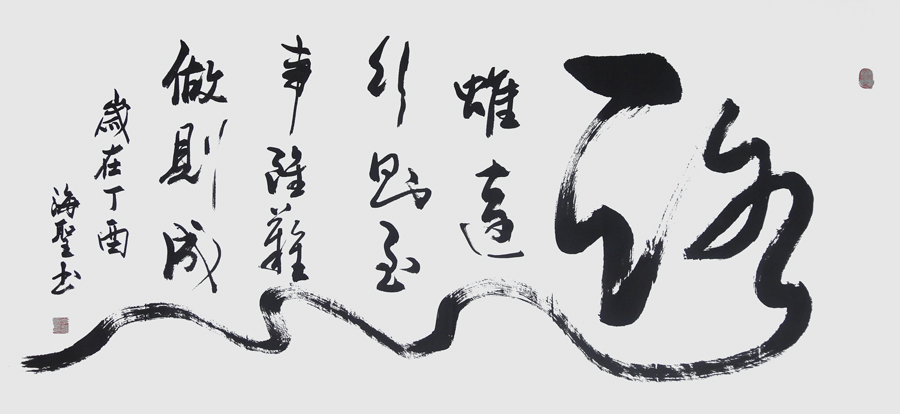 路
雖遠
行則至
事雖難
做則成
歲在丁酉
海聖书